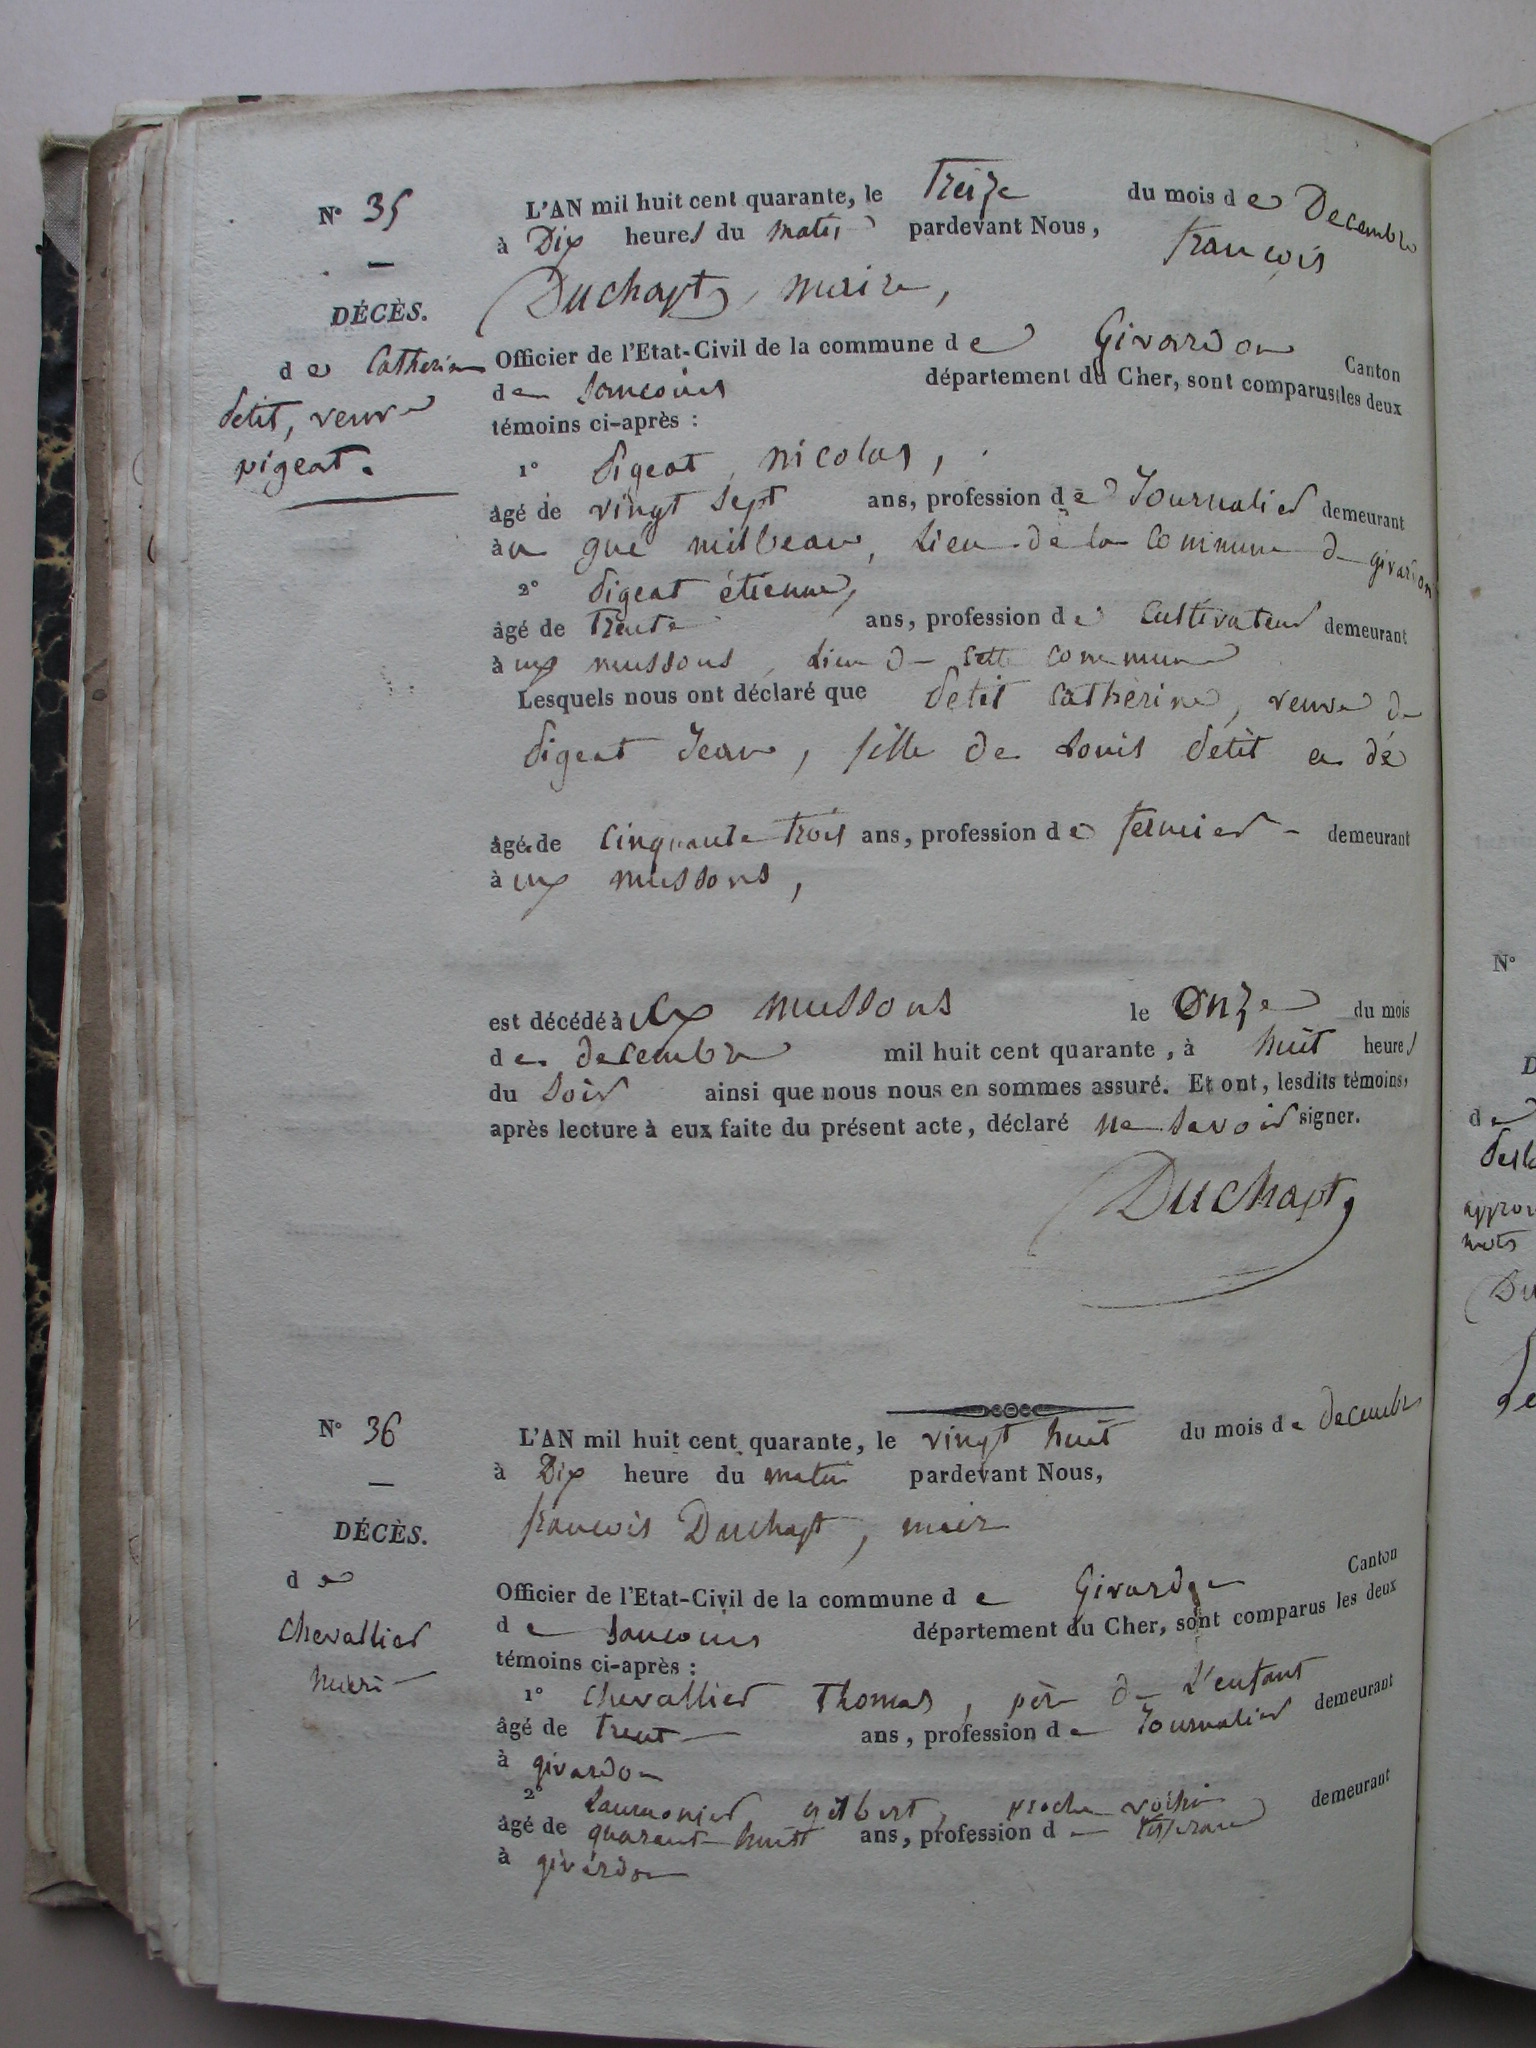 N° 35
DÉCÈS.
de Catherine
petit, veuve
pigeat.
L'AN mil huit cent quarante, le Treize du mois de Decembre
à Dix heures du matin pardevant Nous, francois
Duchapt, maire,
Officier de l'Etat-Civil de la commune de Givardon Canton
de Sancoins département du Cher, sont comparus les deux
témoins ci-après :
1° pigeat, nicolas,
âgé de vingt sept ans, profession de Journalier demeurant
au gué milbeau, Lieu de la Commune de givardon
2° pigeat étienne,
âgé de Trente ans, profession de Cultivateur demeurant
àux mussons, Lieu de cette commune
Lesquels nous ont déclaré que petit Catherine, veuve de
pigeat Jean, fille de Louis petit et de
âgé de cinquante trois ans, profession de fermier demeurant
àux mussons,
est décédé àux mussons le onze du mois
de decembre mil huit cent quarante, à huit heures
du Soir ainsi que nous nous en sommes assuré. Et ont, lesdits témoins,
après lecture à eux faite du présent acte, déclaré ne Savoir signer.
Duchapt
N° 36
DÉCÈS.
de
Chevallier
L'AN mil huit cent quarante, le vingt huit du mois de decembre
à Dix heure du matin pardevant Nous,
francois Duchapt, maire
Officier de l'Etat-Civil de la commune de Givardon Canton
de Sancoins département du Cher, sont comparus les deux
témoins ci-après :
1° Chevallier Thomas, père de L'enfant
âgé de trente ans, profession de Journalier demeurant
à givardon
2° gilbert, proche voisin
âgé de quarante huit ans, profession de tisserand demeurant
à givardon
N°
de
approu
mots
Du